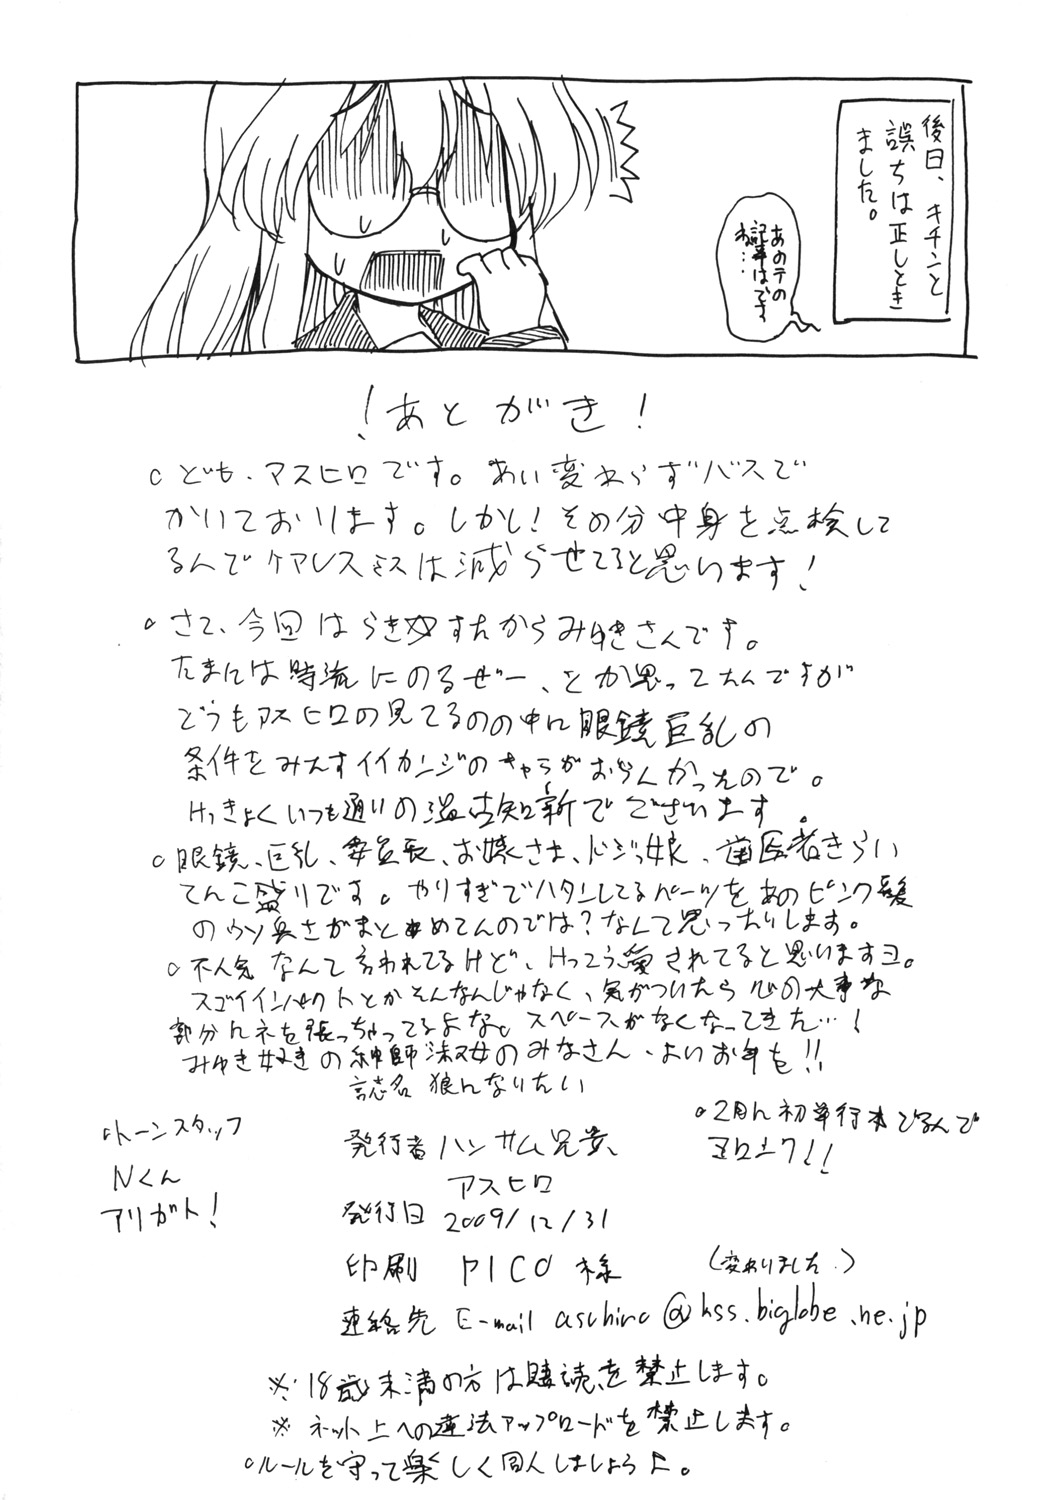 後日、キチンと
誤ちは正しとき
ました。
あのテの
記事はです
ね…
！あとがき！
○ども、アスヒロです。あい変わらずバスで
かいております。しかし！その分中身を点検して
るんでケアレスミスは減らせてると思います！
○さて、今回はらき☆すたからみゆきさんです。
たまには時流にのるぜー、とか思ってたんですが
どうもアスヒロの見てるのの中に眼鏡巨乳の
条件をみたすイイカンジのキャラがおらんかったので。
けっきょくいつも通りの温古知新でございます。
○眼鏡、巨乳、委員長、お嬢さま、ドジっ娘、歯医者きらい
てんこ盛りです。やりすぎでハタンしてるパーツをあのピンク髪
のウソ臭さがまとめてんのでは？なんて思ったりします。
○不人気なんて言われてるけど、けっこう愛されてると思いますヨ。
スゴイインパクトとかそんなんじゃなく、気がついたら心の大事な
部分にネを張っちゃってるよな。スペースがなくなってきた…！
みゆき好きの紳師淑女のみなさん、よいお年を！！
誌名 狼になりたい
○トーンスタッフ
Nくん
アリガト！
発行者 ハンサム兄貴、
アスヒロ
発行日 2009/12/31
印刷 PICO様
連絡先 E-mail asuhiro@kss.biglobe.ne.jp
○2月に初単行本でるんで
ヨロシク！！
（変わりました。）
※18歳未満の方は購読を禁止します。
※ネット上への違法アップロードを禁止します。
○ルールを守って楽しく同人しましょうよ。